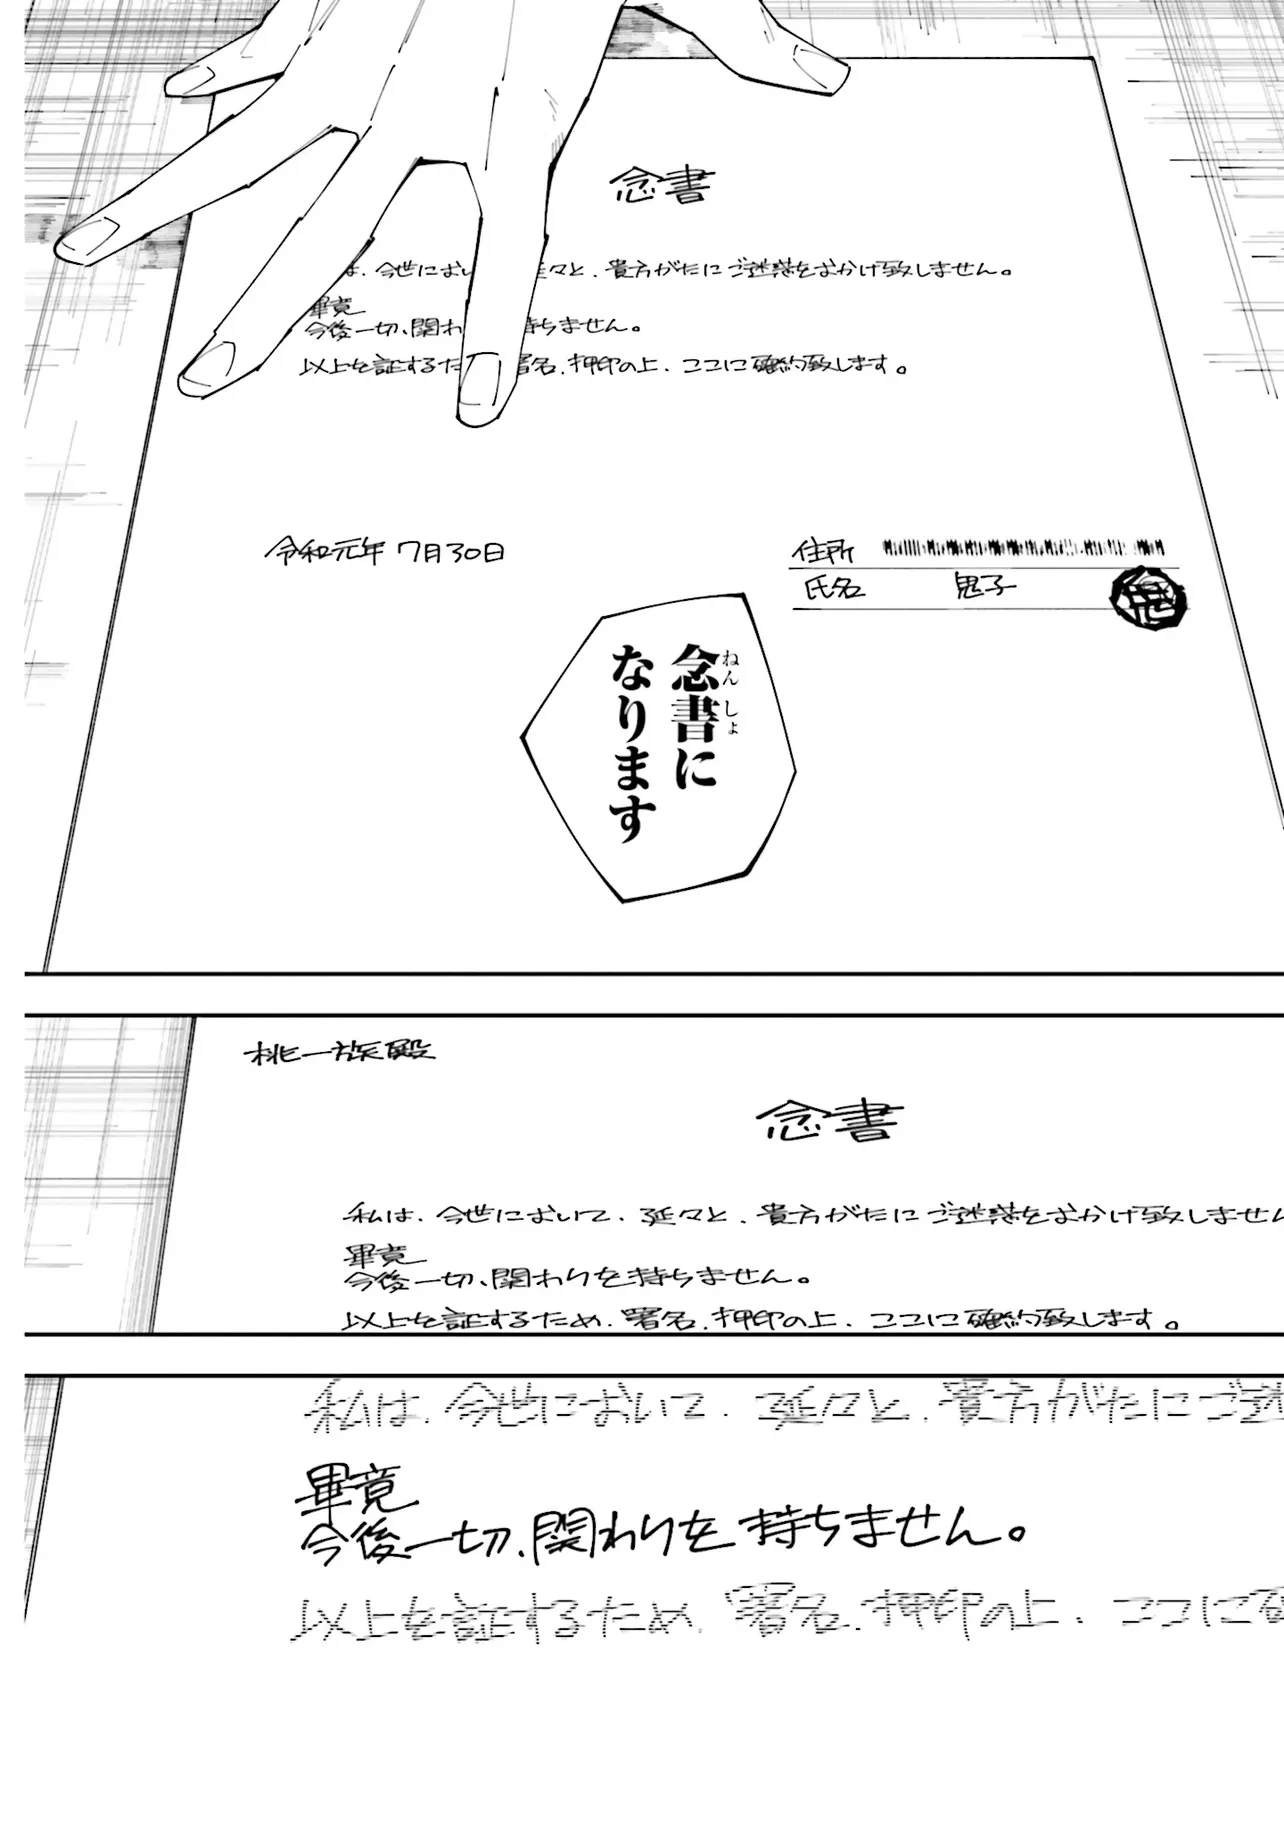 念書
は、今世にお 延々と、貴方がたにご迷惑をおかけ致しません。
畢竟
今後一切、関わ 持ちません。
以上を証するた 署名、押印の上、ココに確約致します。
令和元年 7月30日
住所
氏名 鬼子
鬼
念書に
ねんしょ
なります
桃一族殿
念書
私は、今世において、延々と、貴方がたにご迷惑をおかけ致しません
畢竟
今後一切、関わりを持ちません。
以上を証するため、署名、押印の上、ココに確約致します。
私は、今世において、延々と、貴方がたにご迷
畢竟
今後一切、関わりを持ちません。
以上を証するため、署名、押印の上、ココに確